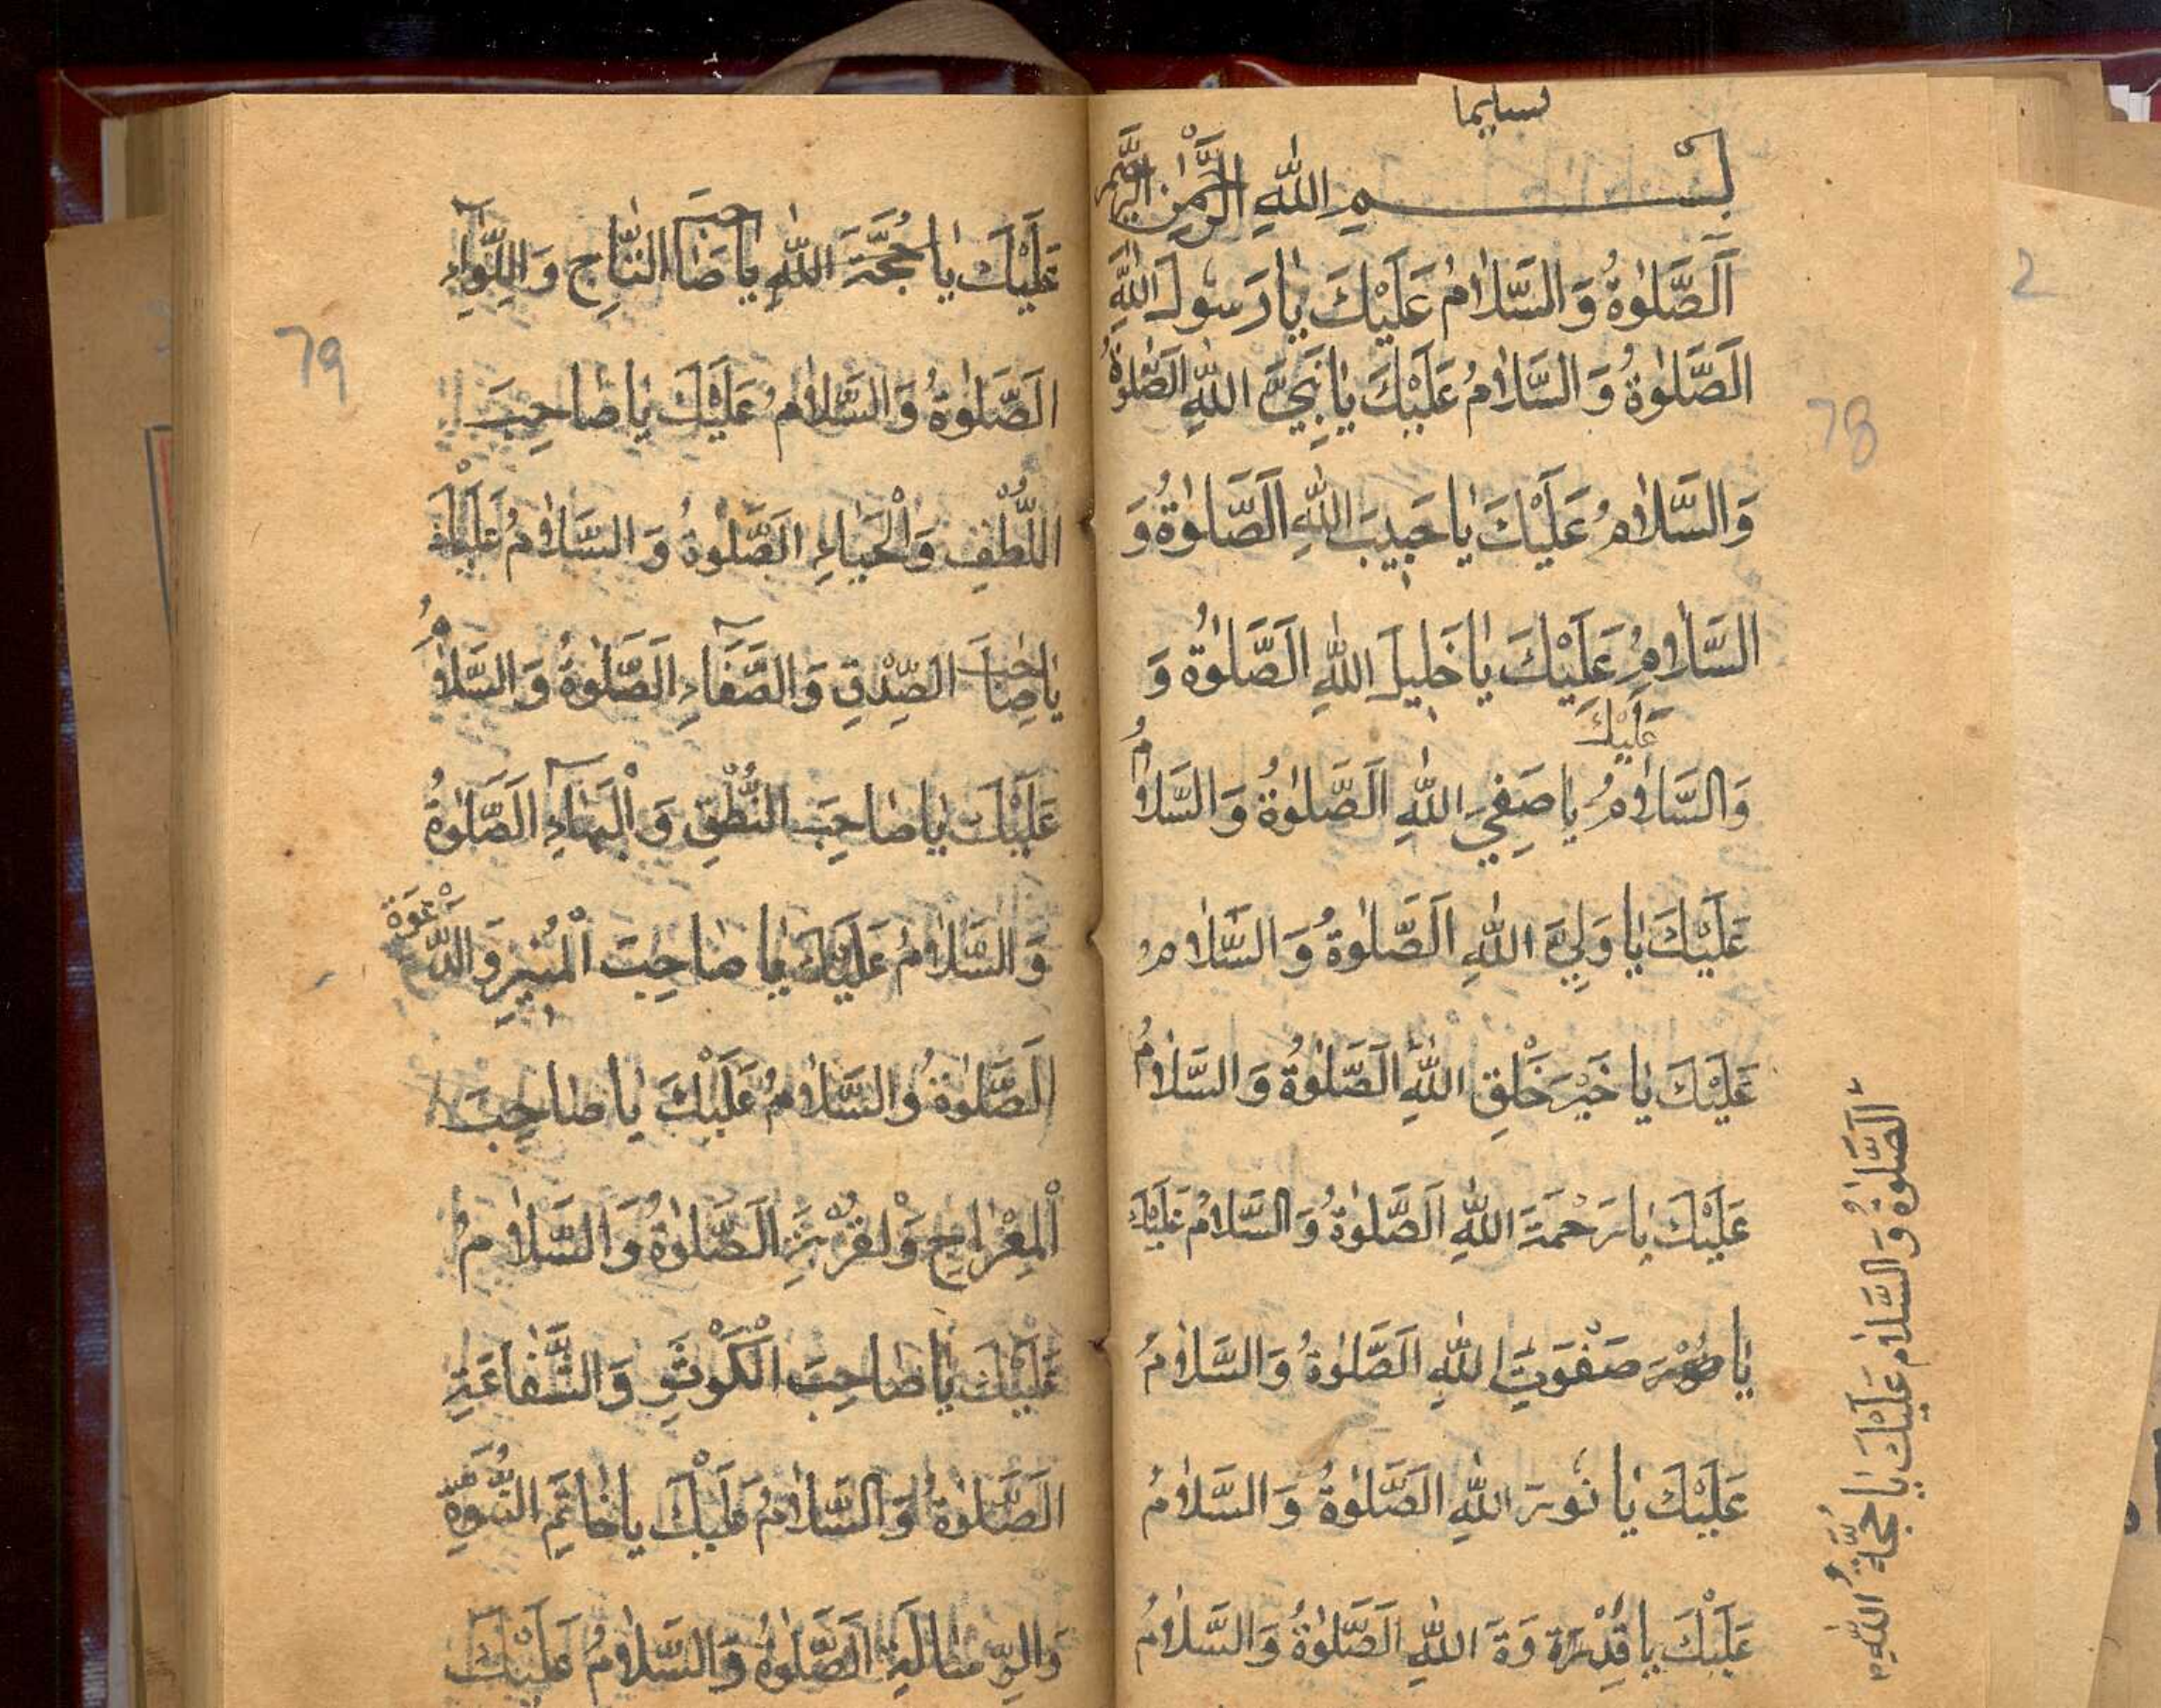 تسليما
بسم الله الرحمن الرحيم
اَلصَّلٰوةُ وَالسَّلَامُ عَلَيْكَ يَا رَسُولَ اللهِ
اَلصَّلٰوةُ وَالسَّلَامُ عَلَيْكَ يَا نَبِيَّ اللهِ الصَّلٰوةُ
وَالسَّلَامُ عَلَيْكَ يَا حَبِيبَ اللهِ اَلصَّلٰوةُ وَ
السَّلَامُ عَلَيْكَ يَا خَلِيلَ اللهِ اَلصَّلٰوةُ وَ
عَلَيْكَ
وَالسَّلَامُ يَا صَفِيَ اللهِ اَلصَّلٰوةُ وَالسَّلَامُ
عَلَيْكَ يَا وَلِيَّ اللهِ اَلصَّلٰوةُ وَالسَّلَامُ
عَلَيْكَ يَا خَيْرَ خَلْقِ اللهِ اَلصَّلٰوةُ وَالسَّلَامُ
عَلَيْكَ يَا رَحْمَةَ اللهِ اَلصَّلٰوةُ وَالسَّلَامُ عَلَيْكَ
يَا صَفْوَتَ اللهِ اَلصَّلٰوةُ وَالسَّلَامُ
عَلَيْكَ يَا نُورَ اللهِ الصَّلٰوةُ وَالسَّلَامُ
عَلَيْكَ يَا قُدْرَة وَةَ اللهِ اَلصَّلٰوةُ وَالسَّلَامُ
اَلصَّلٰوةُ وَالسَّلَامُ عَلَيْكَ يَا حُجَّةُ اللهِ
78
2
عَلَيْكَ يَا حُجَّةَ اللهِ يَا صَاحِبَ التَّاجِ وَاللِّوَآءِ
79
اَلصَّلٰوةُ وَالسَّلَامُ عَلَيْكَ يَا صَاحِبَ
اللُّطْفِ وَالْحَيَاءِ اَلصَّلٰوةُ وَالسَّلَامُ عَلَيْكَ
يَا صَاحِبَ الصِّدْقِ وَالصَّفَآءِ اَلصَّلٰوةُ وَالسَّلَامُ
عَلَيْكَ يَا صَاحِبَ النُّطْقِ وَالْبَهَآءِ اَلصَّلٰوةُ
وَالسَّلَامُ عَلَيْكَ يَا صَاحِبَ الْمُنِيرِ وَالدَّعْوَةِ
اَلصَّلٰوةُ وَالسَّلَامُ عَلَيْكَ يَا صَاحِبَ
الْمِعْرَاجِ وَلْقُرْبَةِ اَلصَّلٰوةُ وَالسَّلَامُ
عَلَيْكَ يَا صَاحِبَ الْكَوْثَرِ وَالشَّفَاعَةِ
اَلصَّلٰوةُ وَالسَّلَامُ عَلَيْكَ يَا خَاتَمِ النُّبُوَّةِ
وَالرِّسَالَةِ اَلصَّلٰوةُ وَالسَّلَامُ عَلَيْكَ